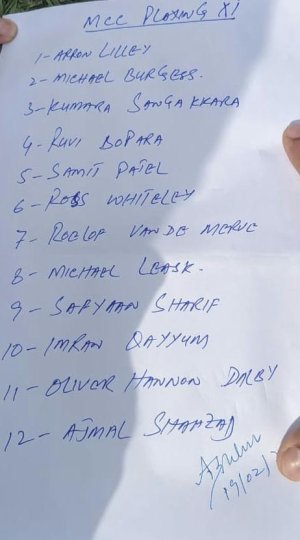 MCC PLAYING XI
1- ARRON LILLEY
2- MICHAEL BURGESS.
3- KUMARA SANGAKKARA
4- RUVI BOPARA
5- SAMIT PATEL
6- ROSS WHITELEY
7- ROELOF VAN DE MERVE
8- MICHAEL LEASK.
9- SAFYAAN SHARIF
10- IMRAN QAYYUM
11- OLIVER HANNON DALBY
12- AJMAL SHAHZAD
19/02/